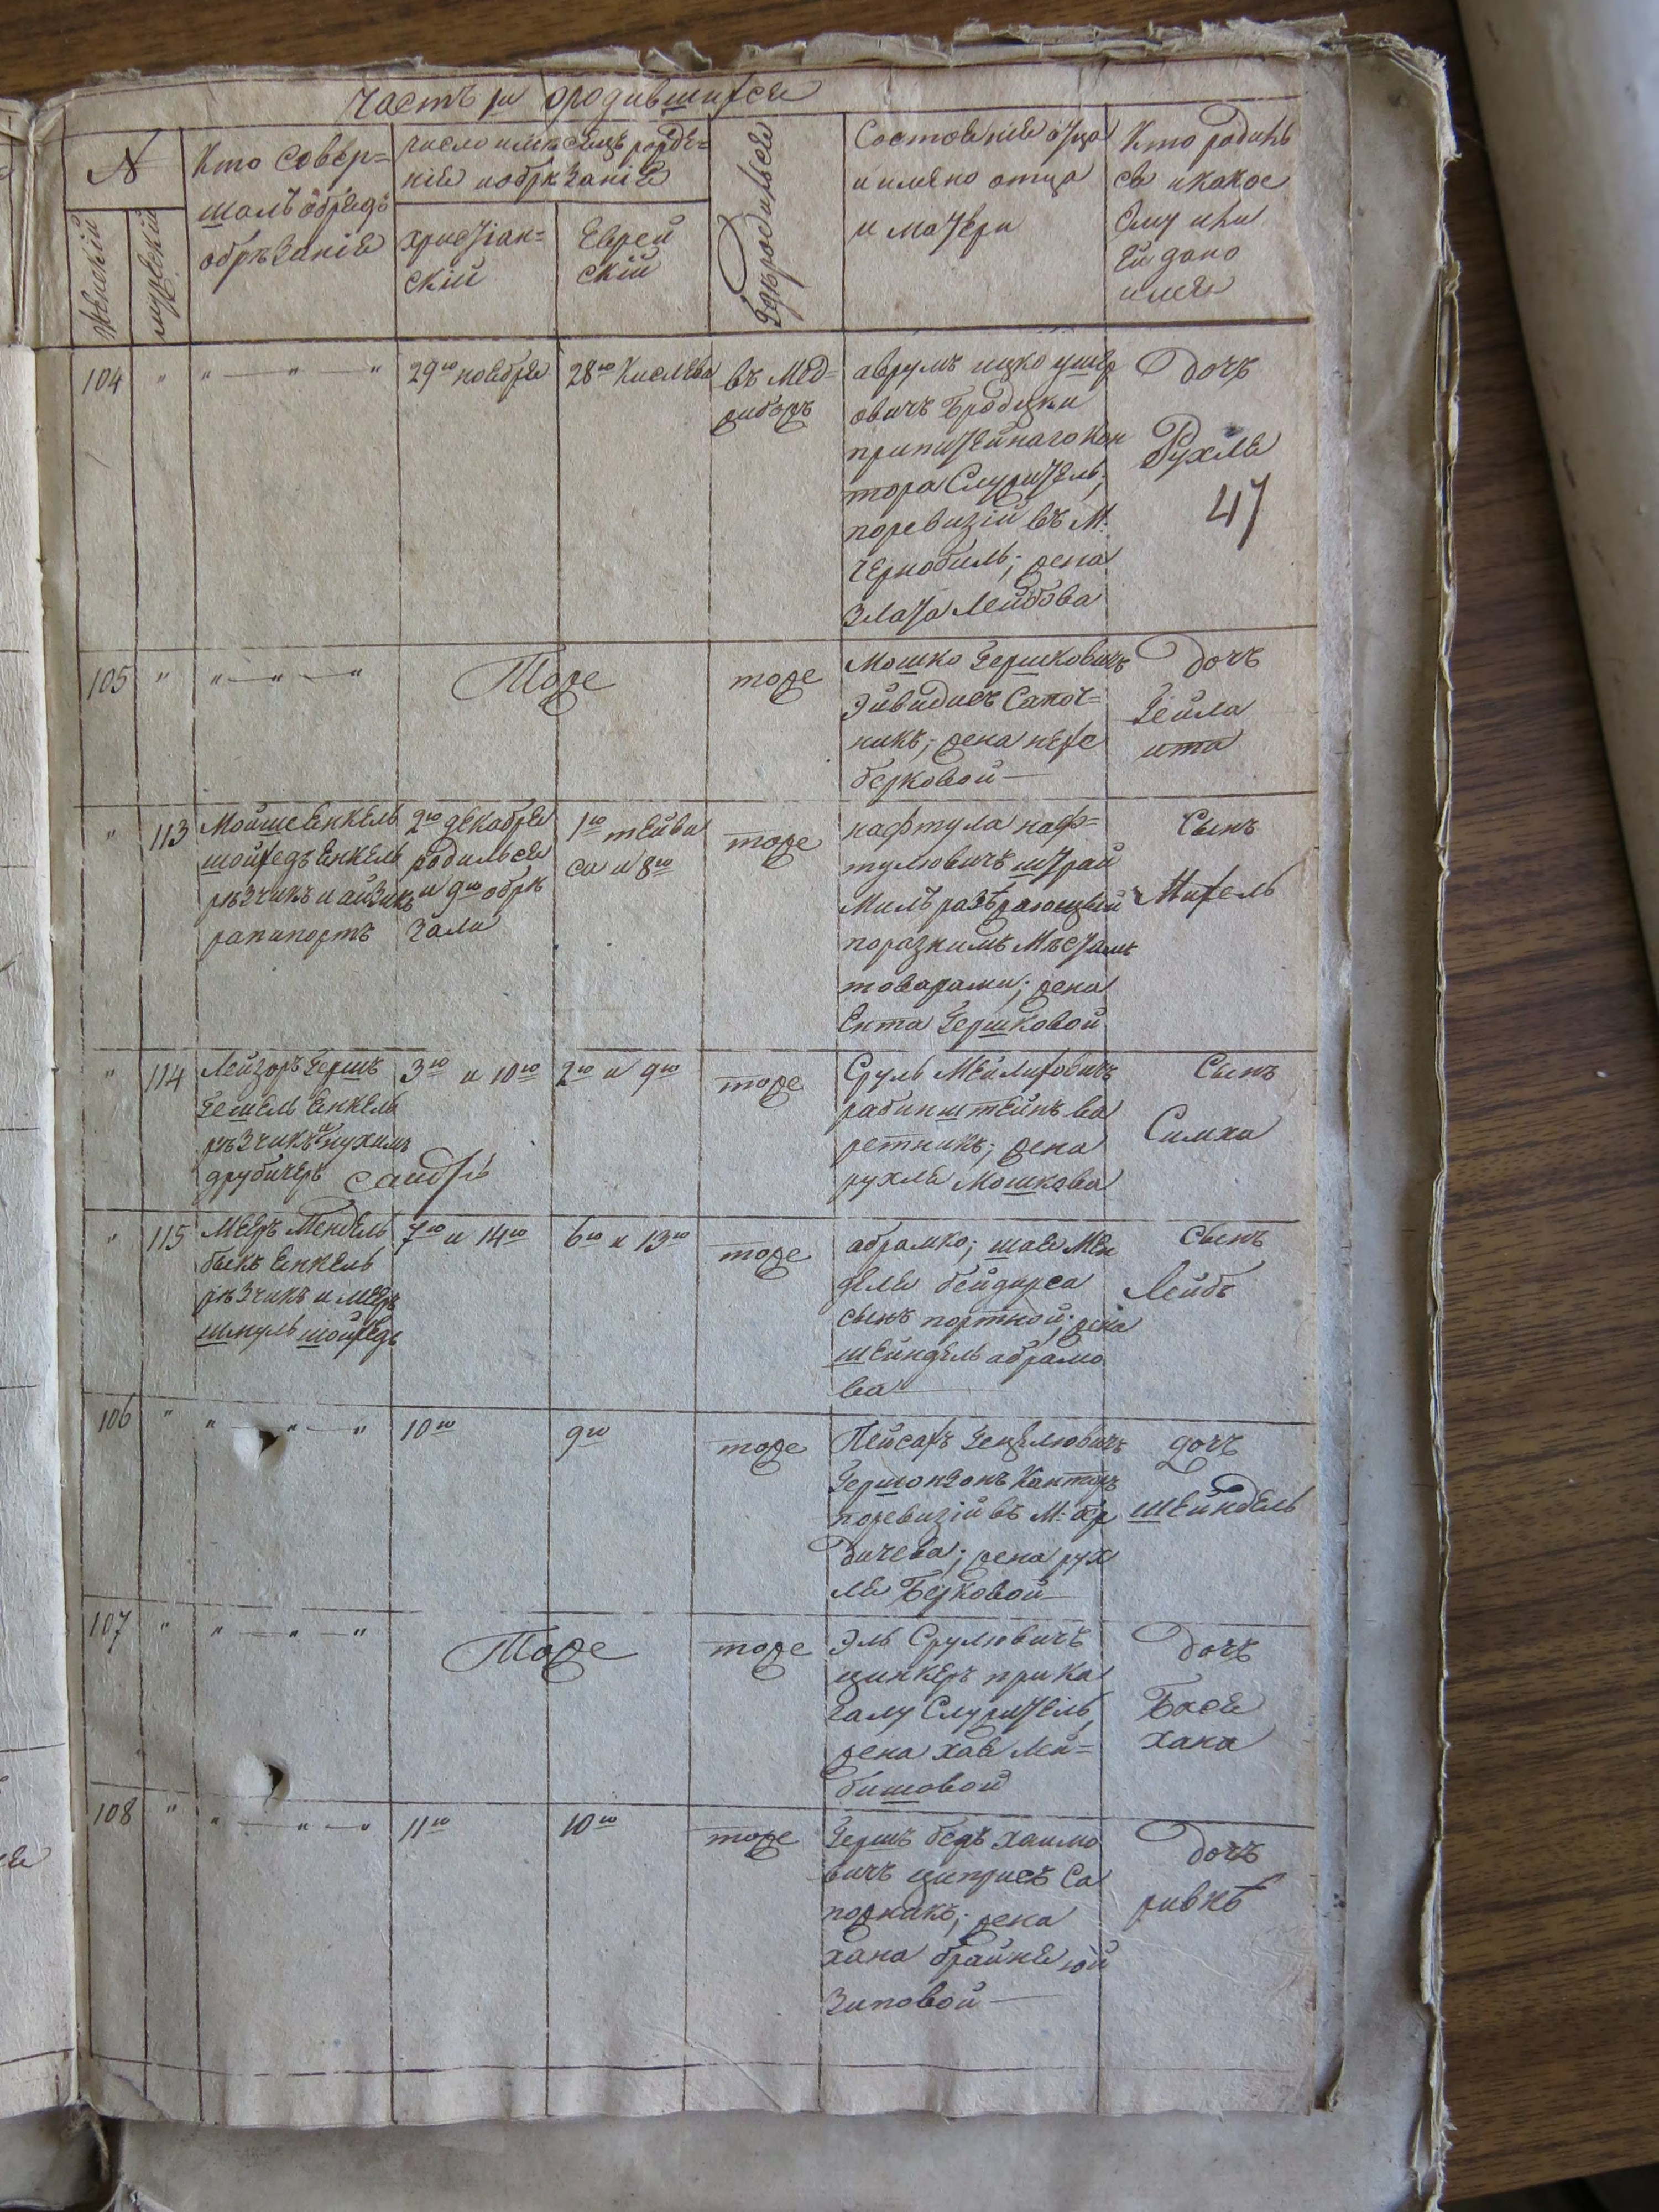 Часть 1я ородившихся
N
женскій
мужескій
Кто совер=
шалъ обрядъ
обрѣзаніе
число имѣсяцъ рожде=
ніе иобрѣзаніе
христіан=
скій
Еврей
скій
Гдѣ родился
Состояніе отца
и имяно отца
и матери
Кто родилъ
ся икакое
ему или
Ей дано
имя
104 " " — " — " 29го ноября 28го Кислева въ Мед=
жибожъ
аврумъ ицко ушер
овичъ Бродецки
припитейнаго кон
тора Служитель;
поревизіи въ М:
Чернобиль; жена
Злата Лейбова
Дочь
Рухля
47
105 " " — " — " Тоже тоже
Мошко Гершковичъ
Эйвидисъ Сапож=
никъ; жена нехе
берковой —
Дочь
Бейла
ита
" 113 Мойше Енкель
шойхедъ Енкель
рѣзчикъ и айзикъ
рапипортъ
2го декабря
родился
и 9го обрѣ
зали
1го тейве
са и 8го
тоже
нафтула наф=
тулювичъ штрай
Милъ разъѣзжающый
поразнимъ Мѣстамъ
товарами; жена
Ента Гершковой
Сынъ
Михель
" 114 Лейзоръ Гершъ
Гешель Енкель
рѣзчикъ и нухимъ
друбичеръ
3го и 10го 2го и 9го тоже
Сруль Мейлиховичъ
рабинштейнъ ва
ретникъ; жена
рухля Мошкова
Сынъ
Симха
" 115 Мееръ Мендель
быкъ Енкель
рѣзчикъ и мееръ
шмуль шойхедъ
7го и 14го 6го и 13го тоже
абрамко; шае Мен
деле бейдерса
сынъ портной; жена
шейндель абрамо
ва —
Сынъ
Лейбъ
106 " " — " — " 10го 9го тоже
Пейсахъ Гецелювичъ
Гершонзонъ Канторъ
поревизіи въ М: бер
дичева; жена рух
ля Берковой —
дочь
шейндель
107 " " — " — " Тоже тоже
Эль Срулювичъ
цинкеръ при ка
галу Служитель,
жена хаве Лей=
бишовой
Дочь
Бася
хана
108 " " — " — " 11го 10го тоже
Гершъ беръ хаимо
вичъ циприсъ Са
пожникъ; жена
хана брайне юй
Зиповой —
Дочь
ривнѣ